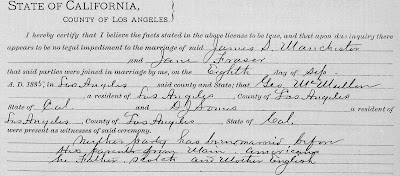 STATE OF CALIFORNIA,
COUNTY OF LOS ANGELES.
I hereby certify that I believe the facts stated in the above license to be true, and that upon due inquiry there
appears to be no legal impediment to the marriage of said James S. Manchester
and Jane Fraser
that said parties were joined in marriage by me, on the Eighth day of Sep
A. D. 1885, in Los Angeles said county and State; that Geo McMullen
a resident of Los Angeles County of Los Angeles
State of Cal. and D. Somes a resident of
Los Angeles, County of Los Angeles, State of Cal.
were present as witnesses of said ceremony.
Neither party has been married before
His parents from Main. americans
her Father scotch and Mother English